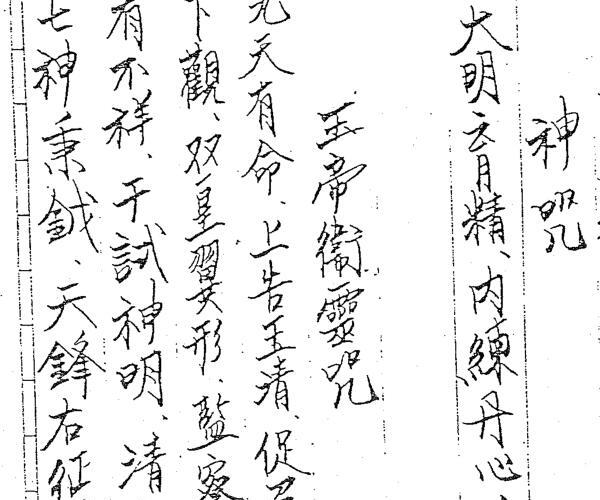 神咒
大明云育精、内練丹心、
玉帝衛靈咒
九天有命、上告玉清、促召
下觀、双皇翼形、監察
有不祥、干試神明、清
七神秉鉞、天鋒右征